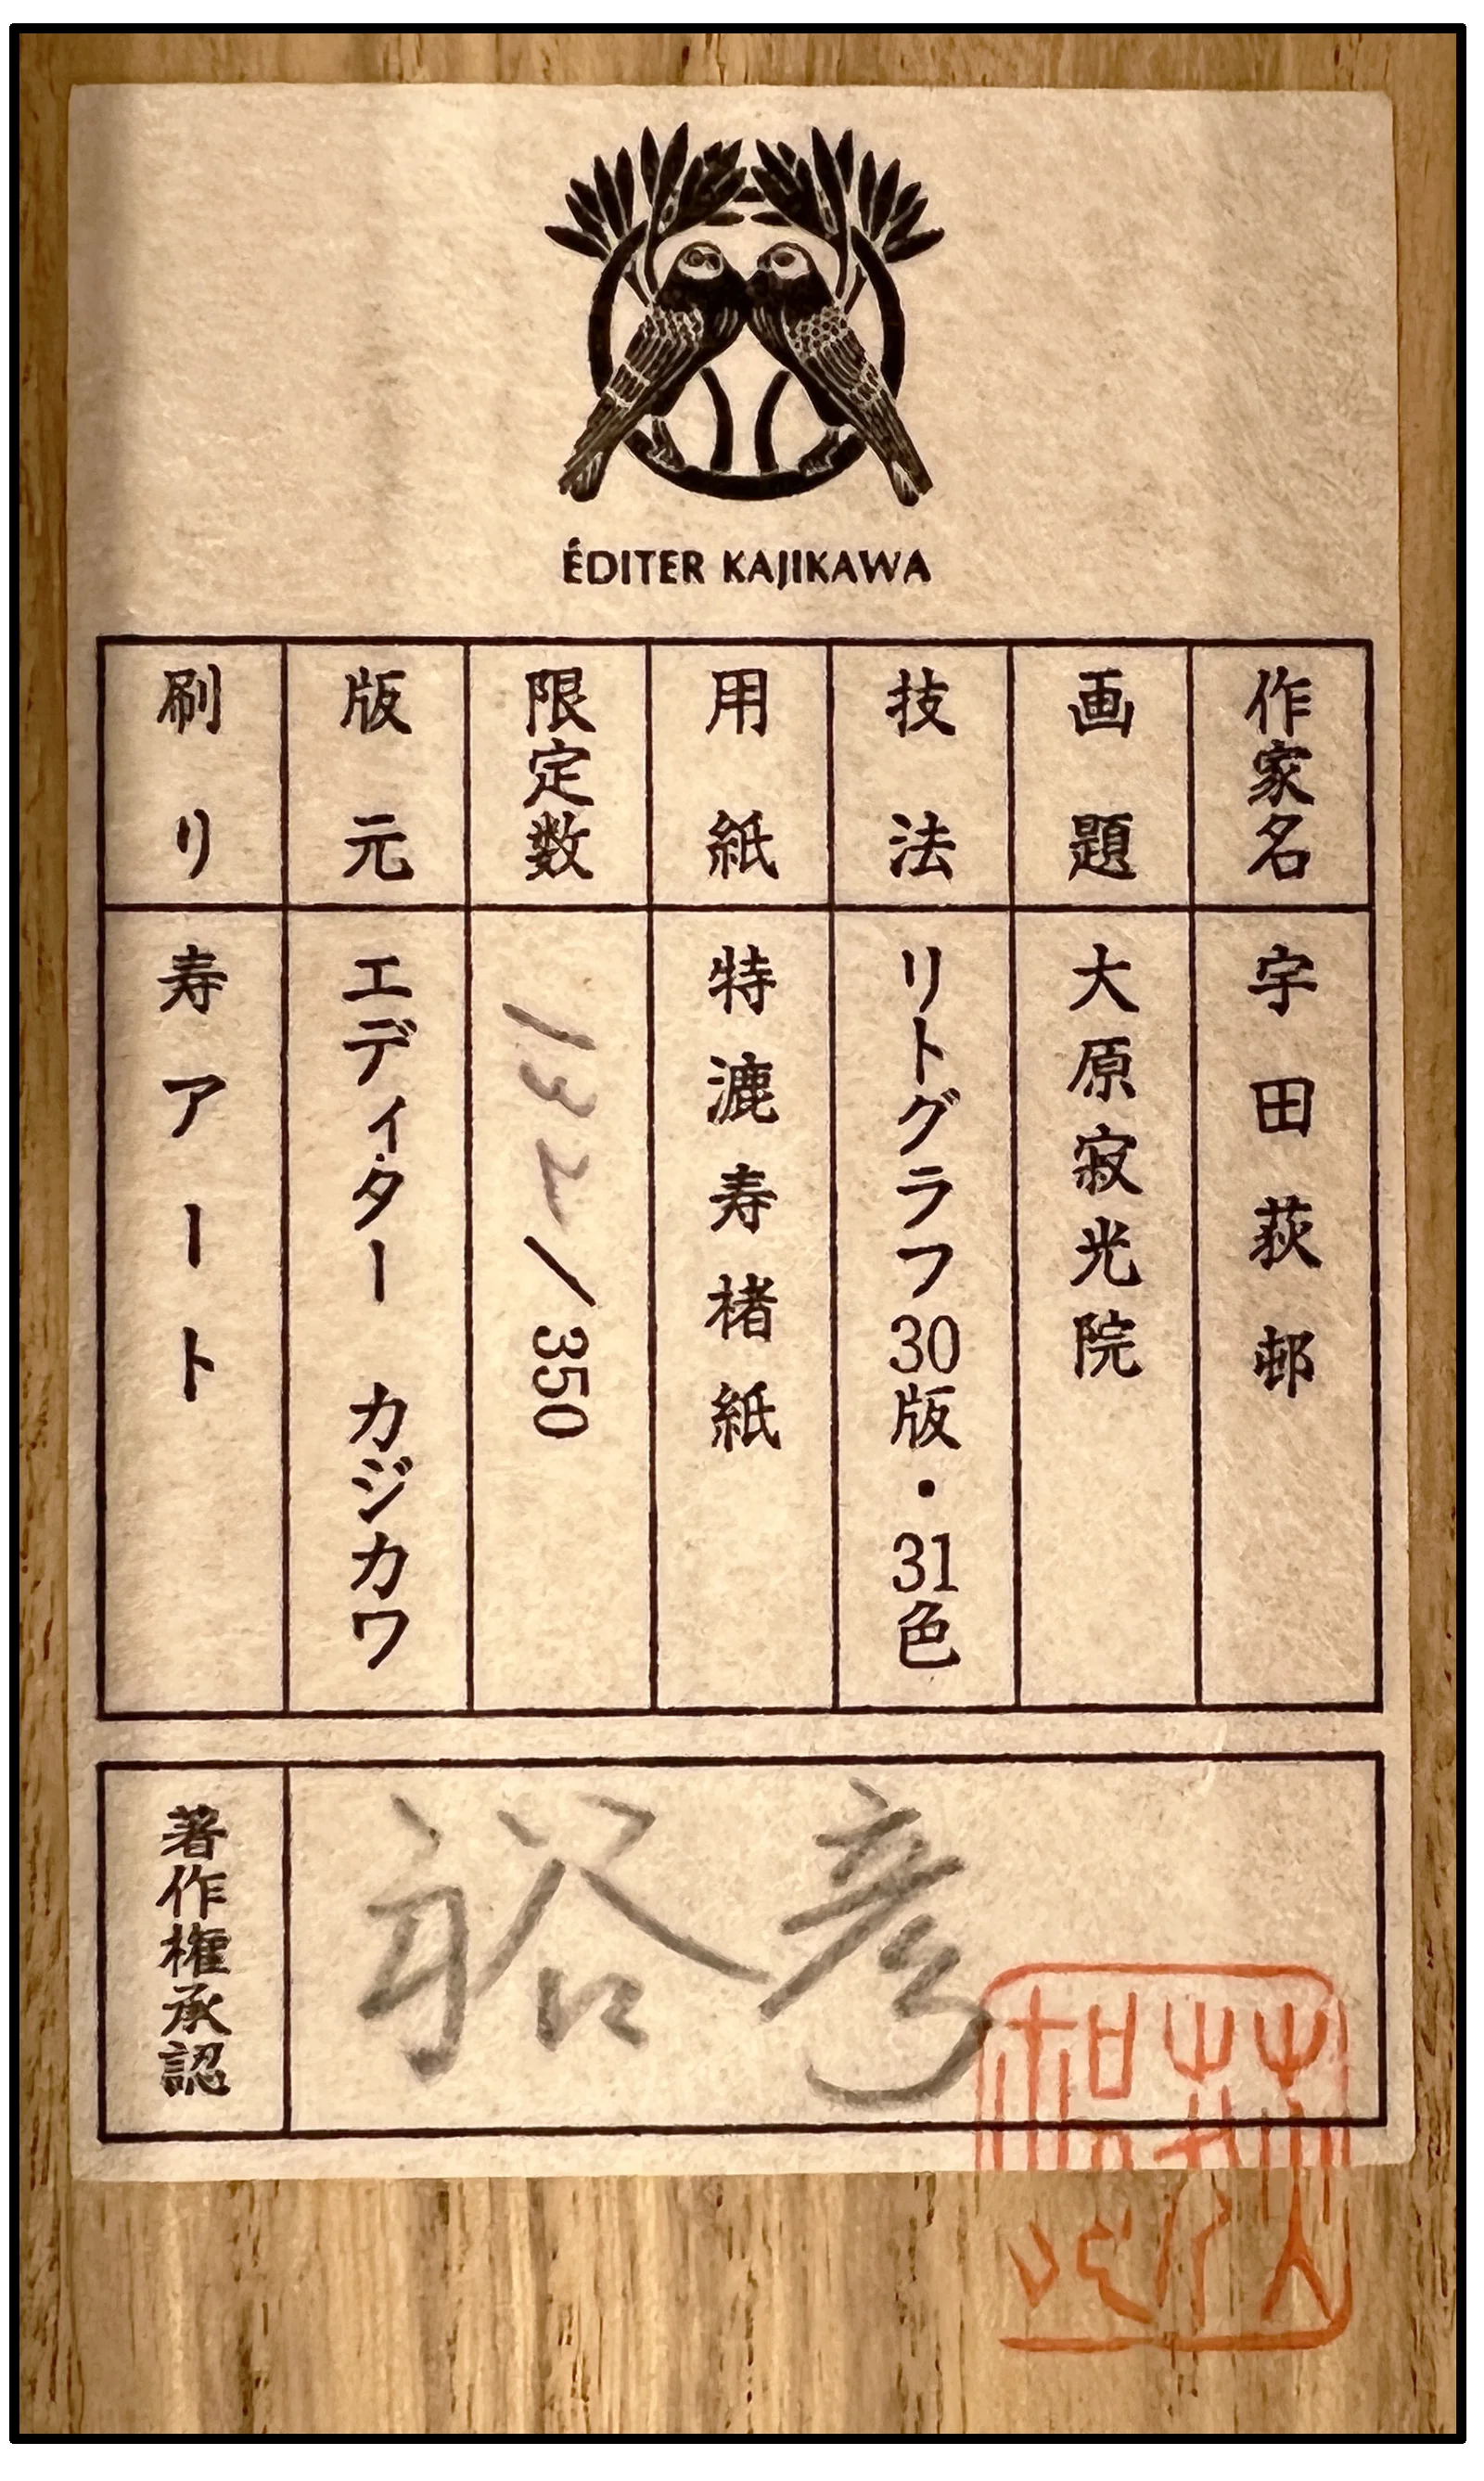 ÉDITER KAJIKAWA
作家名 宇田荻邨
画題 大原寂光院
技法 リトグラフ30版・31色
用紙 特漉寿楮紙
限定数 132/350
版元 エディター カジカワ
刷り 寿アート
著作権承認 裕彦